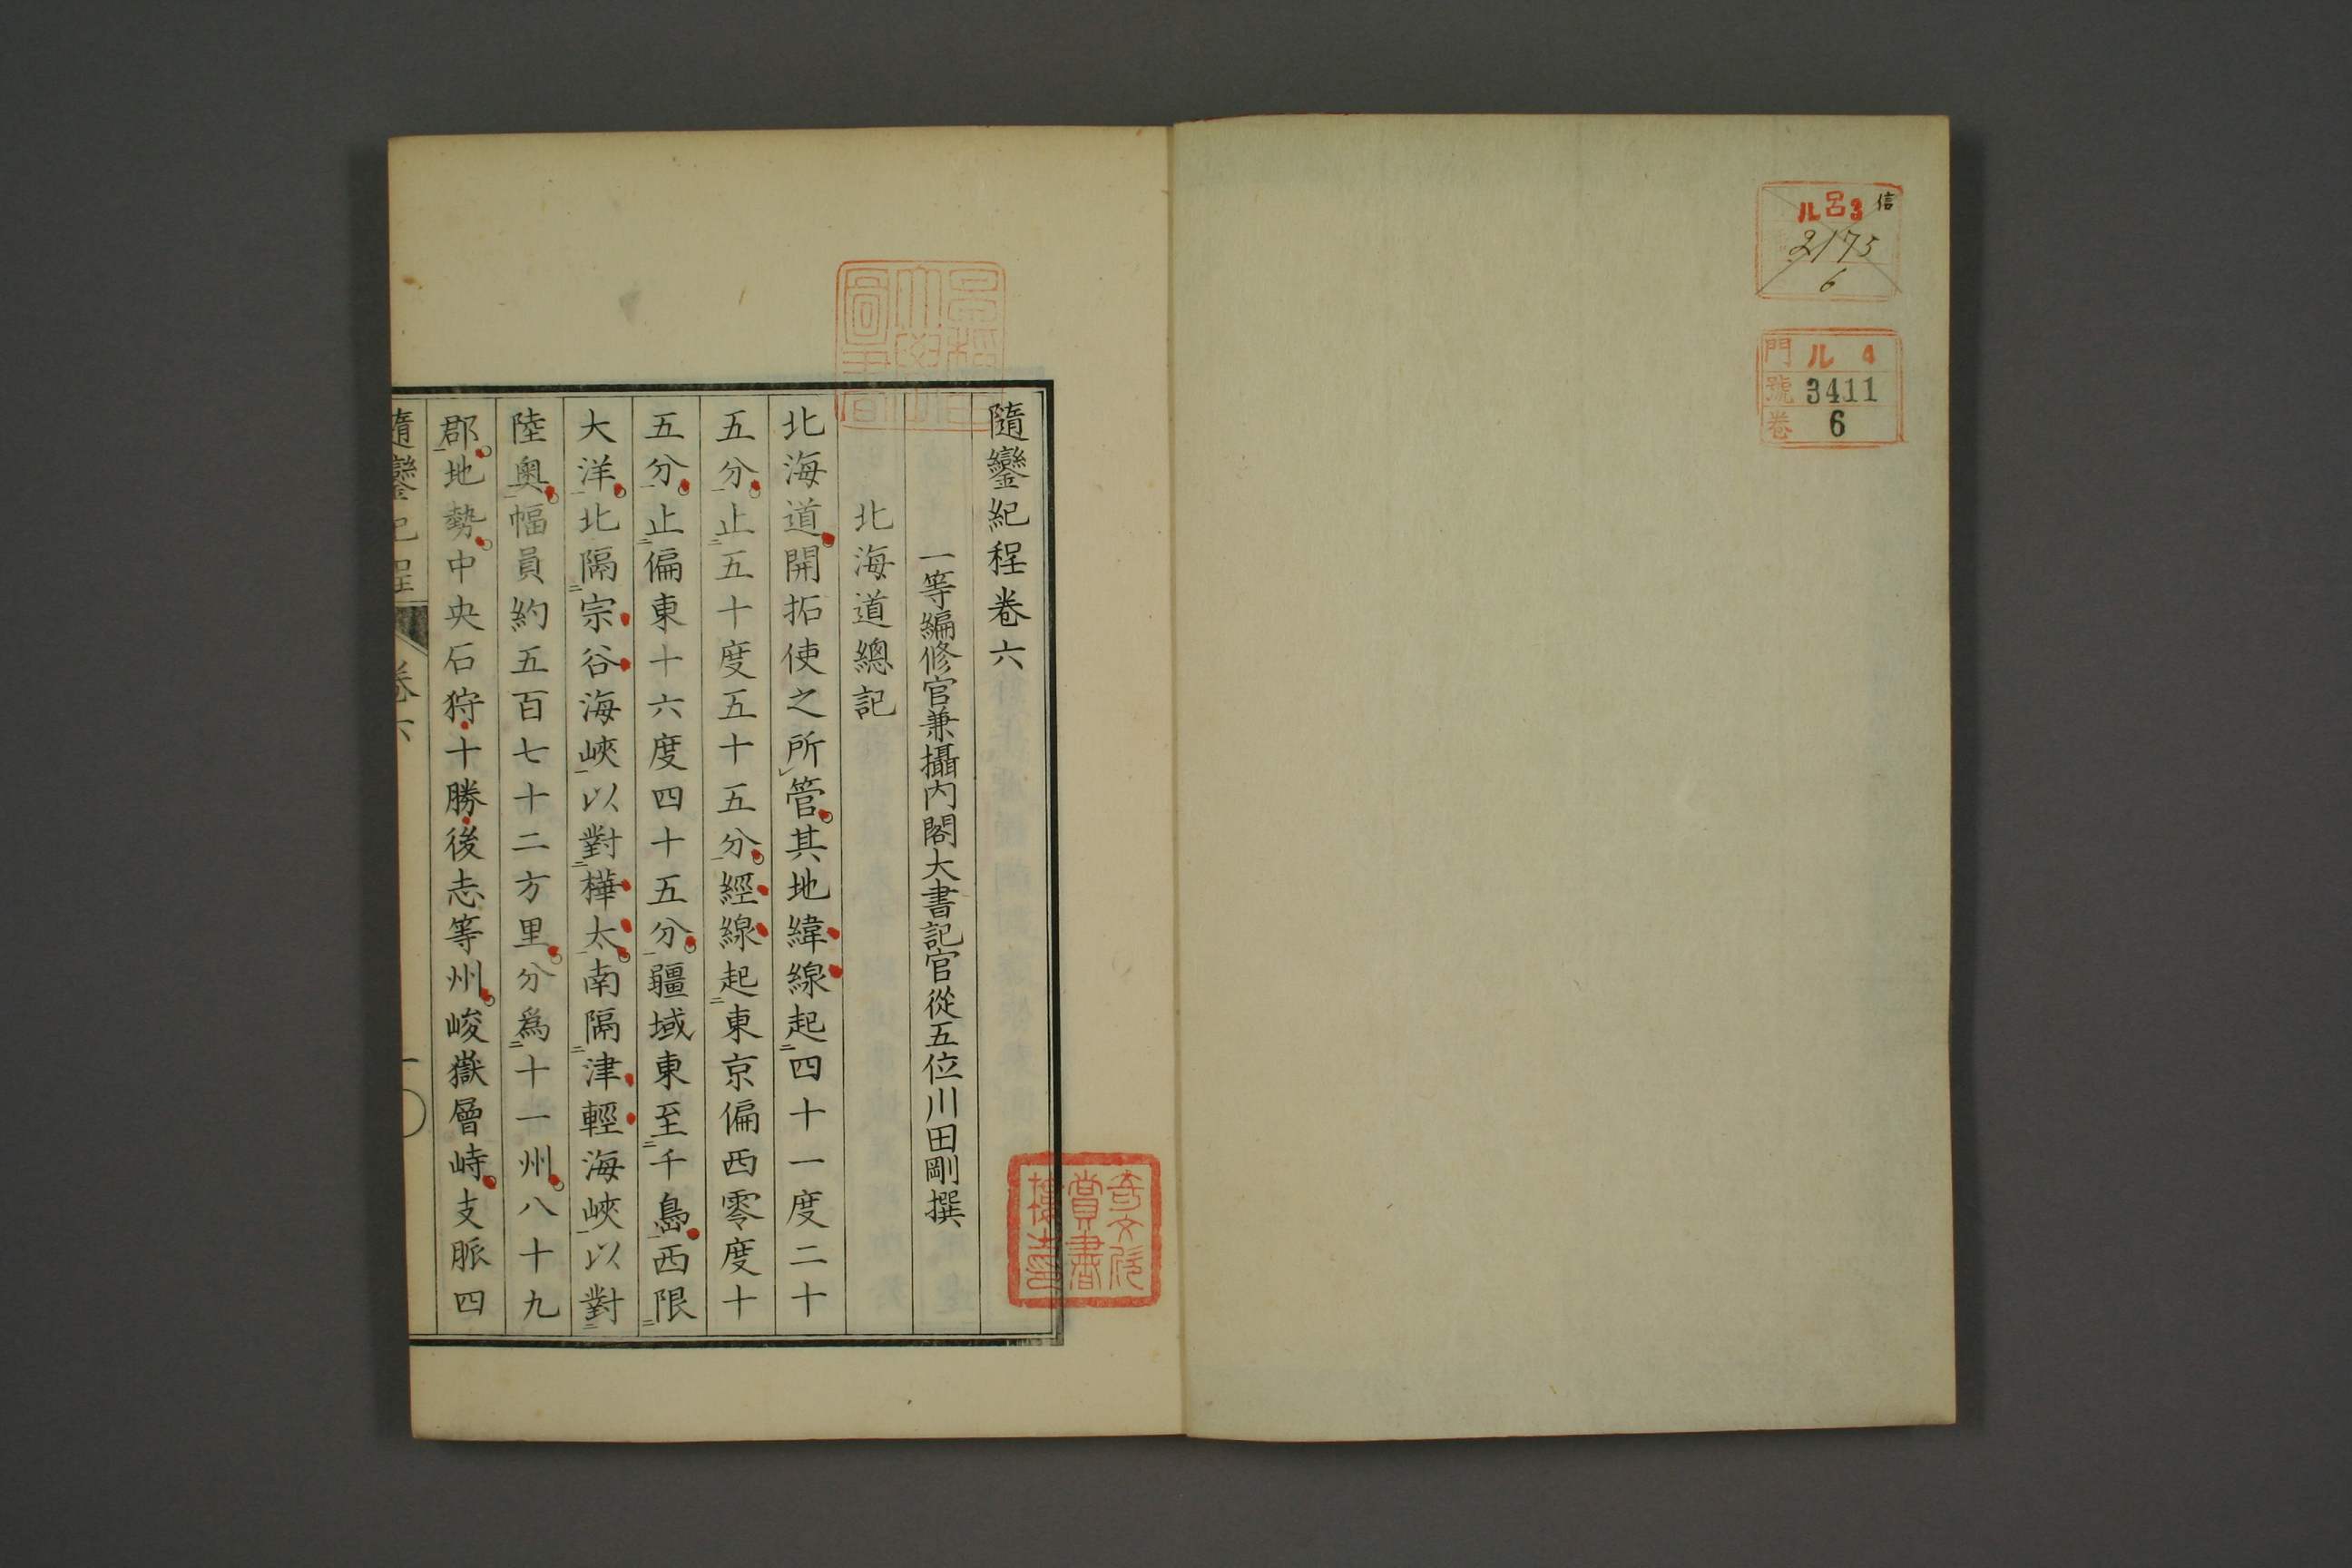 信
ル呂3
2175
6
門 ル 4
號 3411
卷 6
隨鑾紀程卷六
一等編修官兼攝內閣大書記官從五位川田剛撰
北海道總記
北海道開拓使之所管其地緯線起四十一度二十
五分止五十度五十五分經線起東京偏西零度十
五分止偏東十六度四十五分疆域東至千島西限
大洋北隔宗谷海峽以對樺太南隔津輕海峽以對
陸奧幅員約五百七十二方里分為十一州八十九
郡地勢中央石狩十勝後志等州峻嶽層峙支脈四
隨鑾紀程 卷六 一